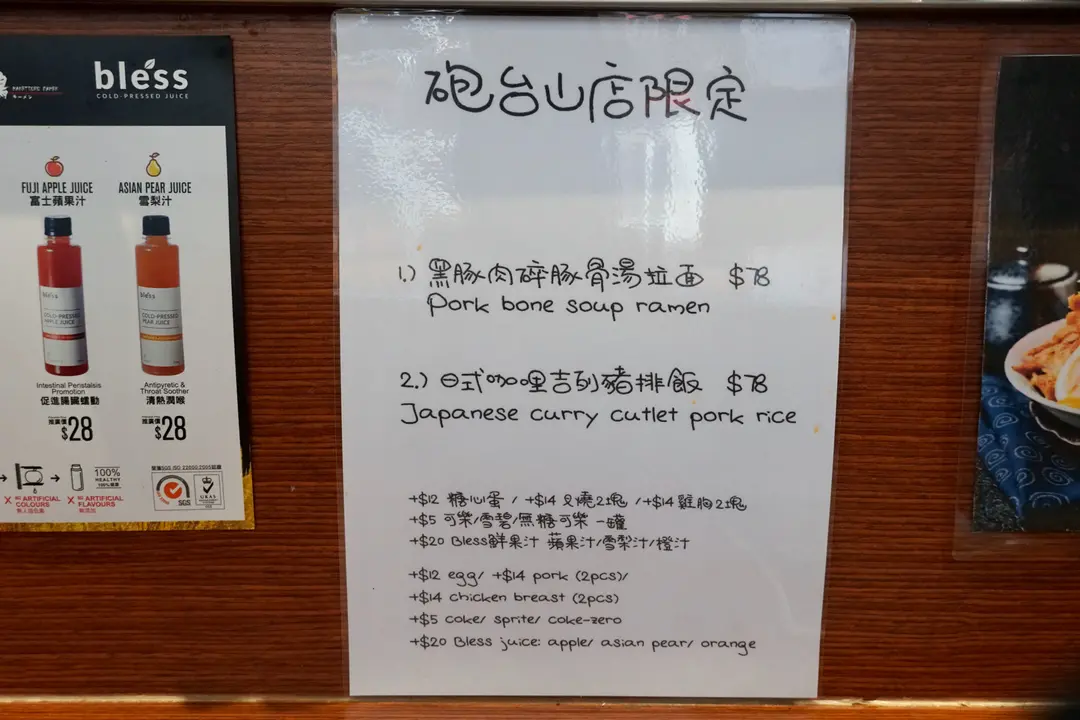 bless
COLD-PRESSED JUICE
ラーメン
FUJI APPLE JUICE
富士蘋果汁
ASIAN PEAR JUICE
雪梨汁
bless
COLD-PRESSED
APPLE JUICE
bless
COLD-PRESSED
PEAR JUICE
Intestinal Peristalsis
Promotion
促進腸臟蠕動
$28
Antipyretic &
Throat Soother
清熱潤喉
$28
100%
HEALTHY
NO ARTIFICIAL
COLOURS
NO ARTIFICIAL
FLAVOURS
SGS
UKAS
砲台山店限定
1.) 黑豚肉碎豚骨湯拉面 $78
Pork bone soup ramen
2.) 日式咖哩吉列豬排飯 $78
Japanese curry cutlet pork rice
+$12 糖心蛋 / +$14 叉燒2塊 /+$14 雞胸2塊
+$5 可樂/雪碧/無糖可樂 一罐
+$20 Bless鮮果汁 蘋果汁/雪梨汁/橙汁
+$12 egg/ +$14 pork (2pcs)/
+$14 chicken breast (2pcs)
+$5 coke/ sprite/ coke-zero
+$20 Bless juice: apple/ asian pear/ orange